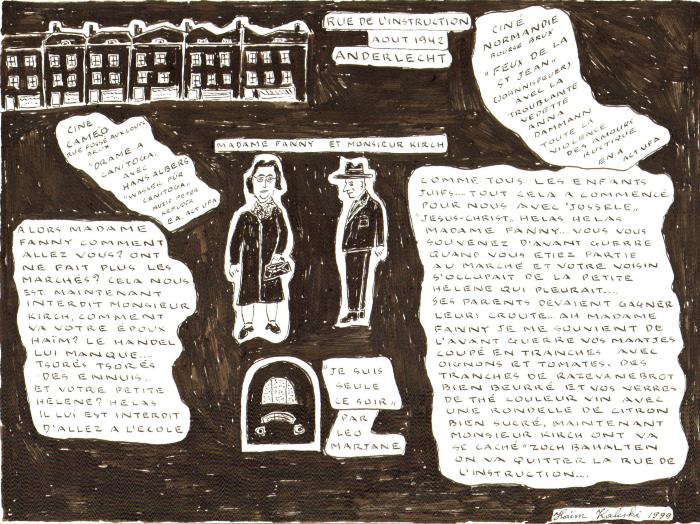 RUE DE L'INSTRUCTION
AOUT 1942
ANDERLECHT
CINÉ
NORMANDIE
BOURSE BRUX
"FEUX DE LA
ST JEAN"
(JOHANNISFEUER)
AVEC LA
TROUBLANTE
VEDETTE
ANNA
DAMMANN
TOUTE LA
VIOLENCE
DES AMOURS
RUSTIQUE
EN A ACT UFA
CINE
CAMEO
RUE FOSSE AUX LOUPS
BRUX
"DRAME A
CANITOGA"
AVEC
HANS ALBERS
"WASSER FÜR
CANITOGA"
MUZIK PETER
KREUDER
E.A. ACT UFA
MADAME FANNY ET MONSIEUR KIRCH
ALORS MADAME
FANNY COMMENT
ALLEZ VOUS? ONT
NE FAIT PLUS LES
MARCHÉS? CELA NOUS
EST MAINTENANT
INTERDIT MONSIEUR
KIRCH, COMMENT
VA VOTRE ÉPOUX
HAÏM? LE HANDEL
LUI MANQUE....
TSORÈS TSORÈS
"DES ENNUIS"
ET VOTRE PETITE
HELENE? HELAS
IL LUI EST INTERDIT
D'ALLEZ A L'ECOLE
COMME TOUS LES ENFANTS
JUIFS... TOUT CELA A COMMENCÉ
POUR NOUS AVEC "JOSSELE"
"JESUS-CHRIST" HELAS HELAS
MADAME FANNY... VOUS VOUS
SOUVENEZ D'AVANT GUERRE
QUAND VOUS ETIEZ PARTIE
AU MARCHÉ ET VOTRE VOISIN
S'OCCUPAIT DE LA PETITE
HELENE QUI PLEURAIT....
SES PARENTS DEVAIENT GAGNER
LEURS CROUTE... AH MADAME
FANNY JE ME SOUVIENT DE
L'AVANT GUERRE VOS MAATJES
COUPÉ EN TRANCHES AVEC
OIGNONS ET TOMATES. DES
TRANCHES DE RAZEVANEBROT
BIEN BEURRÉ ET VOS VERRES
DE THÉ COULEUR VIN AVEC
UNE RONDELLE DE CITRON
BIEN SUCRÉ, MAINTENANT
MONSIEUR KIRCH ONT VA
SE CACHÉ "ZOCH BAHALTEN
ON VA QUITTER LA RUE DE
L'INSTRUCTION....
"JE SUIS
SEULE
CE SOIR"
PAR
LEO
MARJANE
Haïm Kaliski 1999